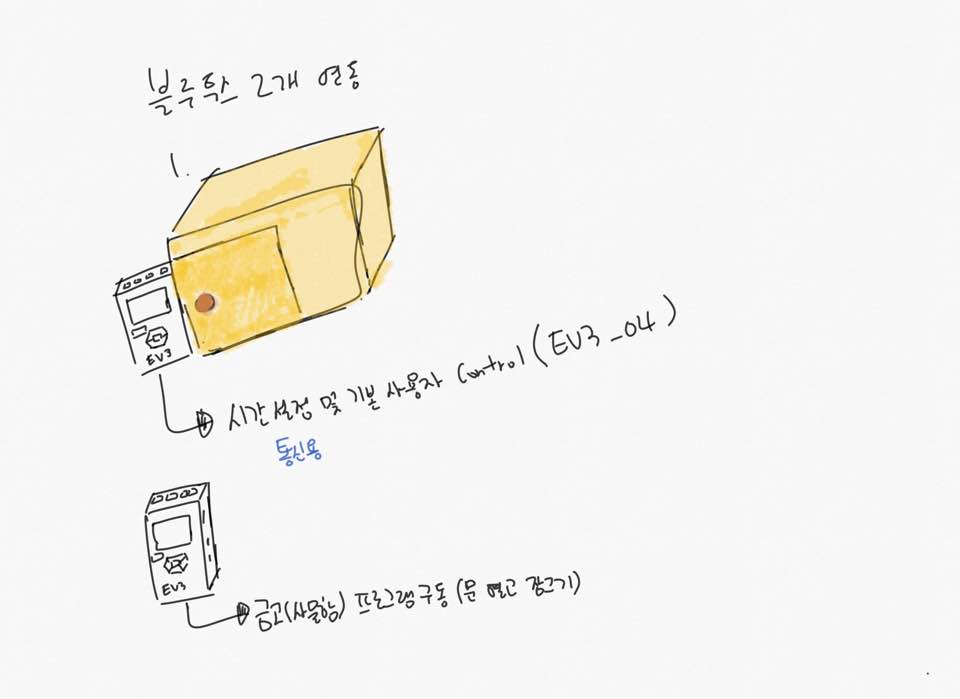 블루투스 2개 연동
1.
EV3
시간설정 및 기본 사용자 Control (EV3_04)
통신용
EV3
금고(사물함) 프로그램구동 (문 열고 잠그기)